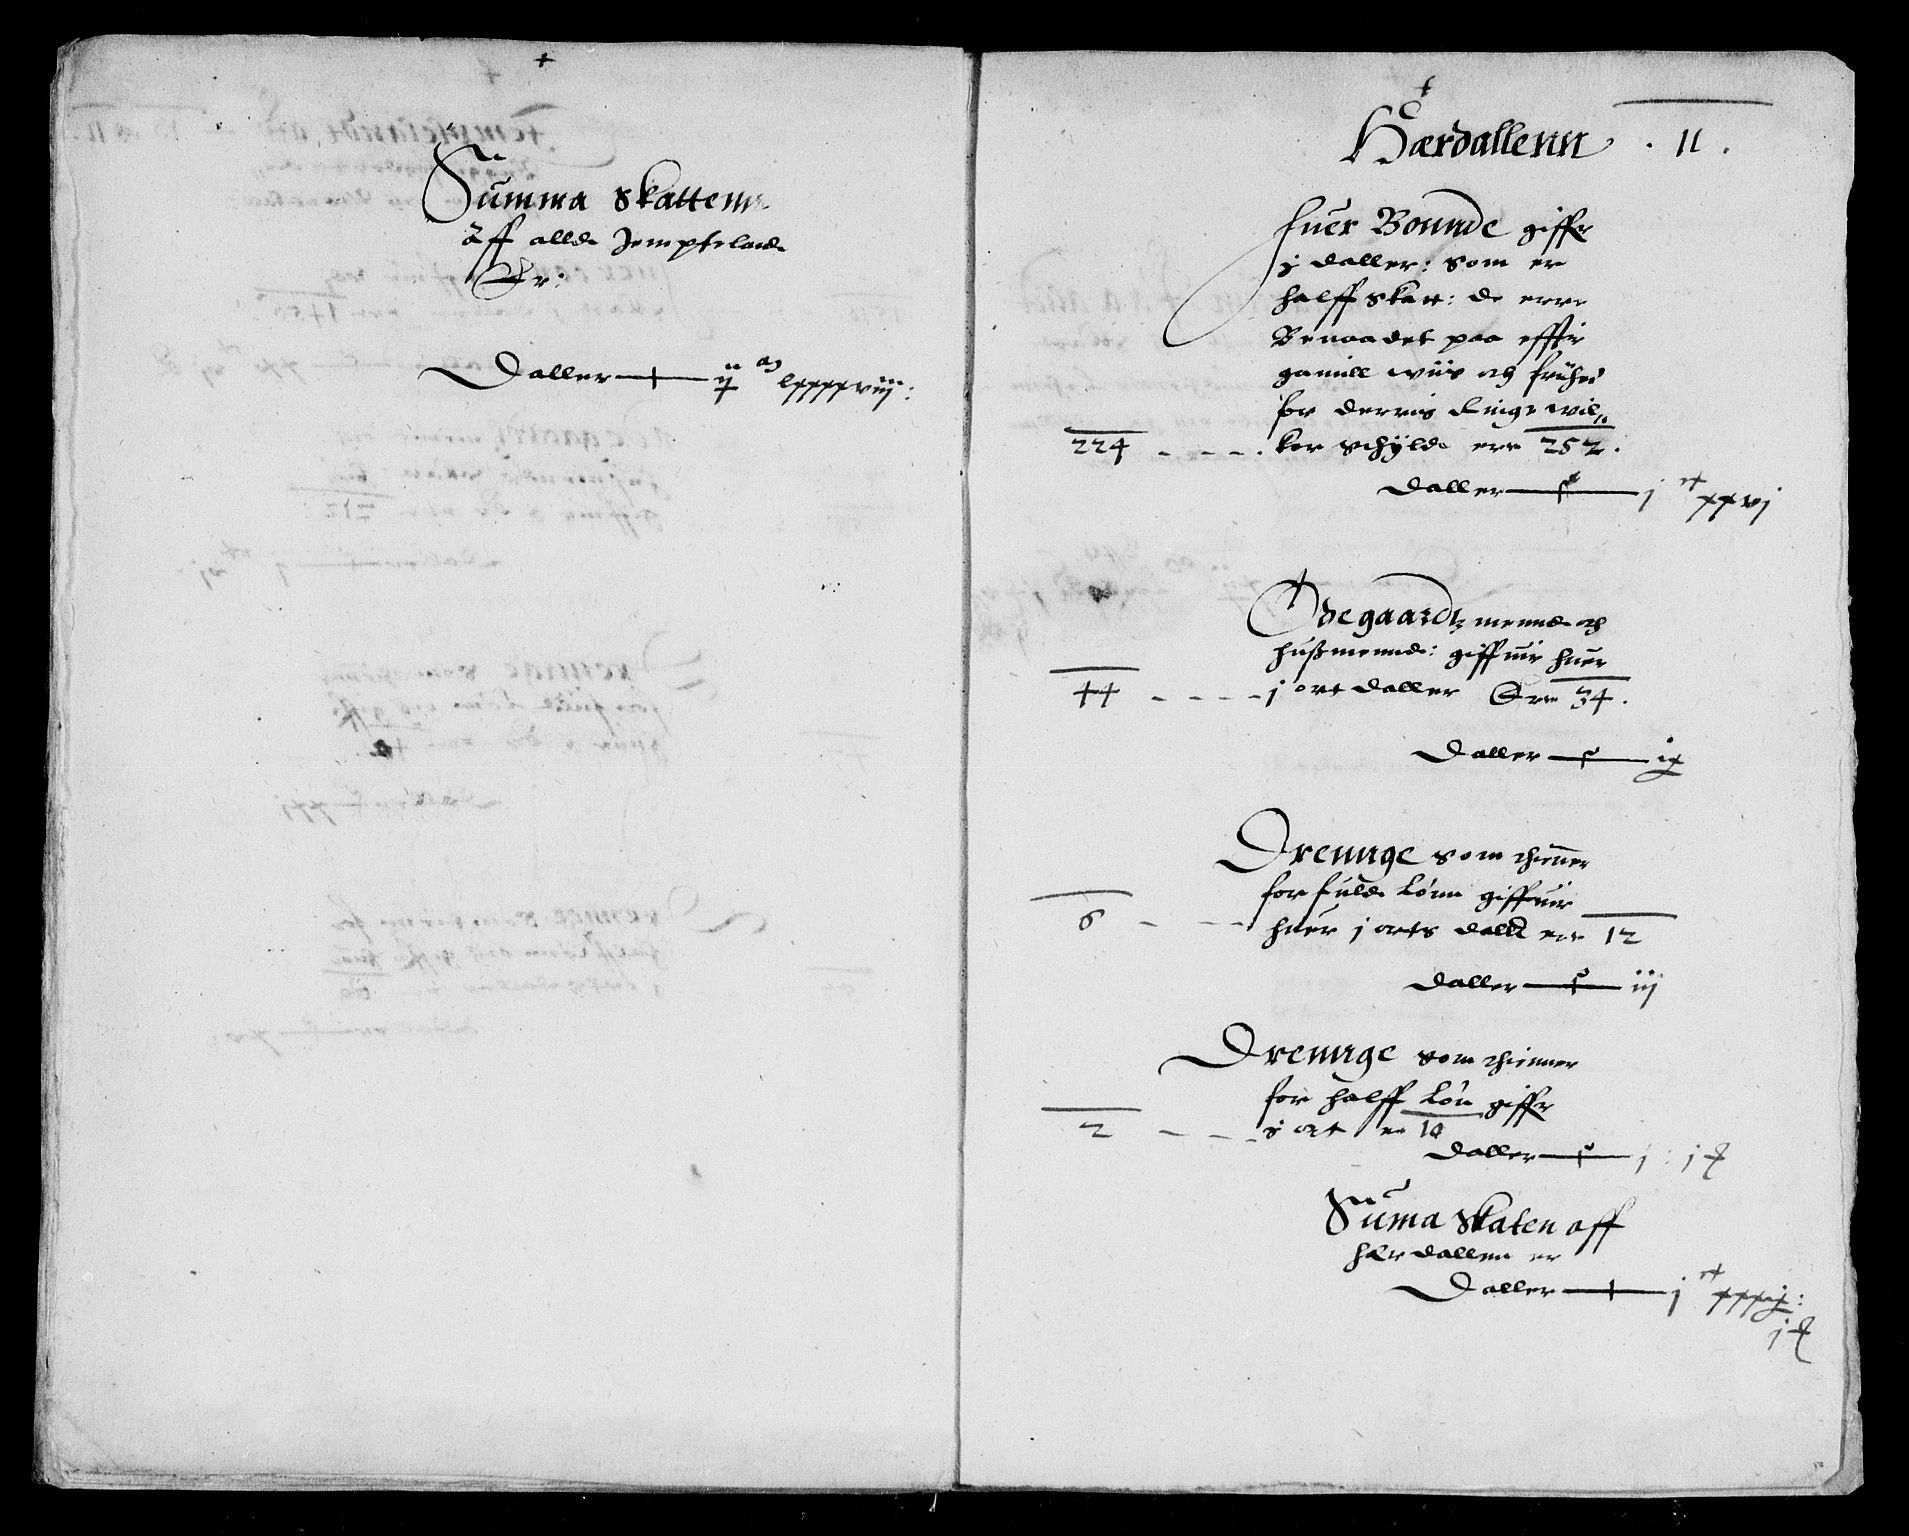 Summa Skattenn
Aff alld Jempteland
Er:
Daller — ij m lxxxxviij:
Hærdallenn . 11 .
Huer Bonnde giffr
j daller: som er
halff skatt: de erre
Benaadet paa effter
gamill wiis och friihed
for derris Ringe wil„
224 - - - . kor schyld ere 252.
Daller — j c xxvj
Ødegaardtz mennd och
hussmennd: giffuir huer
44 - - - - j ort daller Ere 34.
Daller — ix
Drennge som thienner
for fuld Lønn giffuir
6 - - - huer j orts dallr ere 12
Daller — iij
Drennge som thienner
for halff Løn giffr
2 - - - ort er 10
Daller — j : j
Suma Skaten aff
Hærdallen er
Daller — j c xxxix:
j